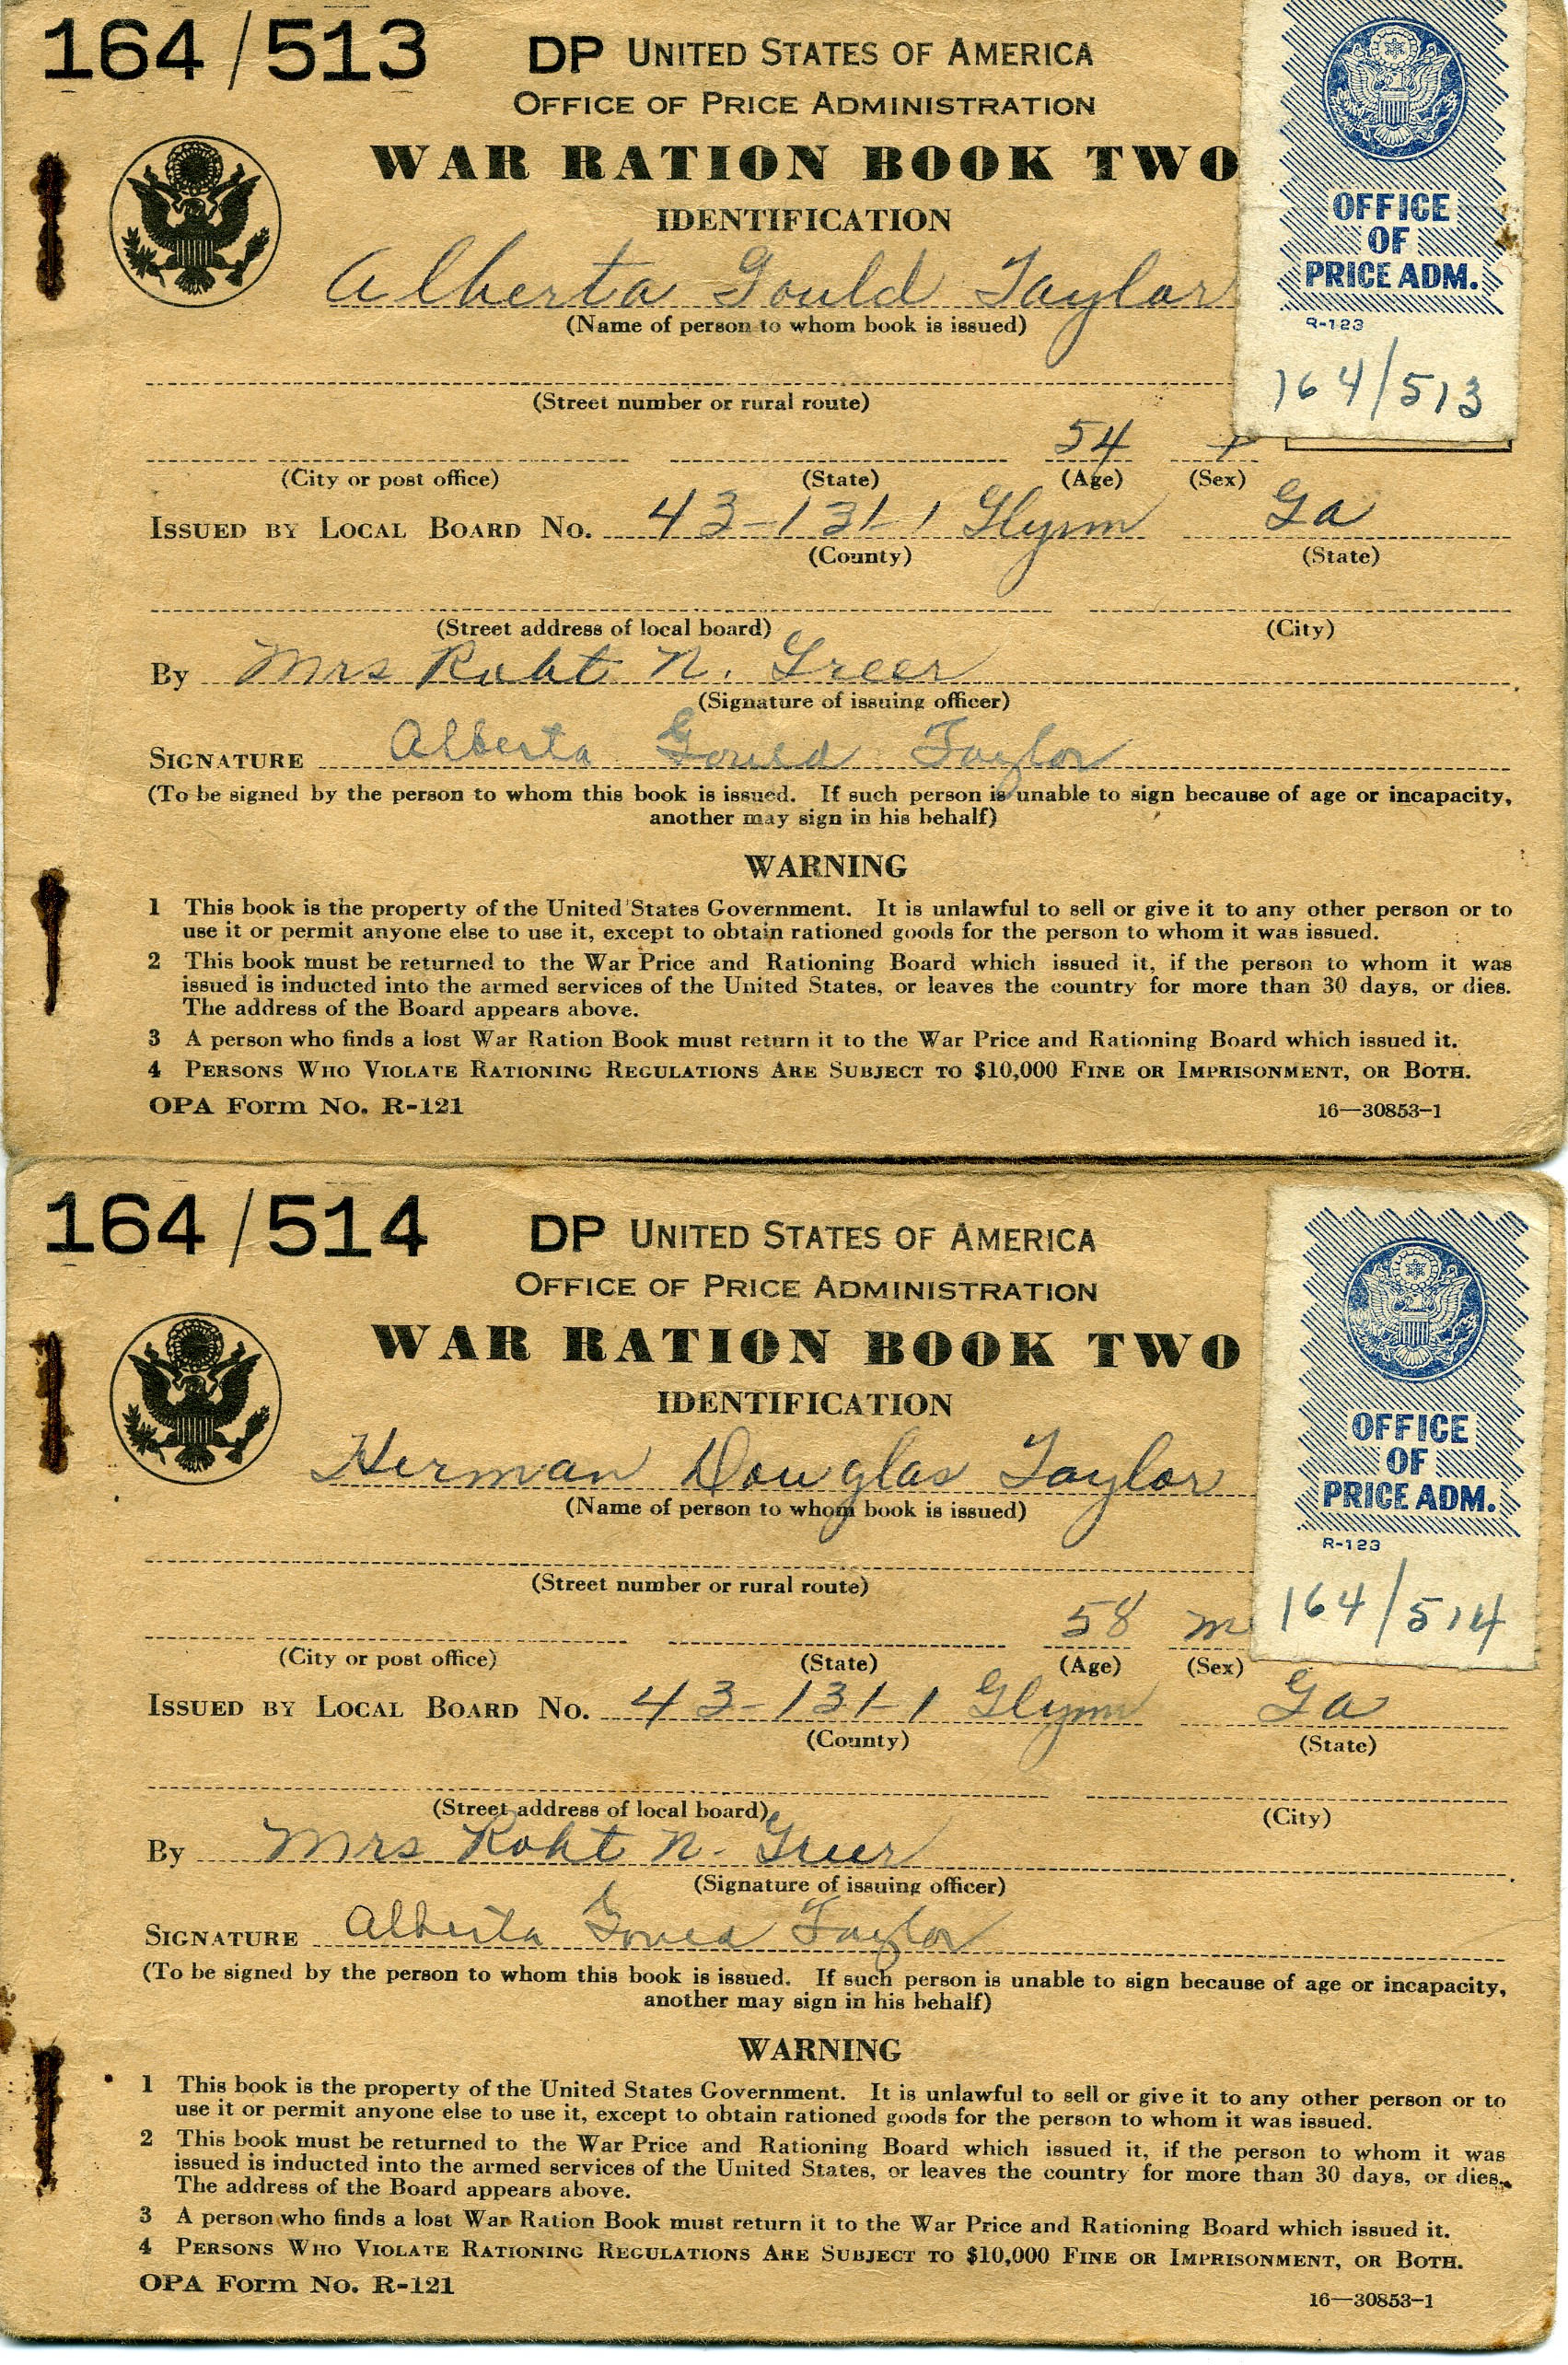 164/513 DP UNITED STATES OF AMERICA
OFFICE OF PRICE ADMINISTRATION
WAR RATION BOOK TWO
IDENTIFICATION
OFFICE
OF
PRICE ADM.
R-123
164/513
Alberta Gould Taylor
(Name of person to whom book is issued)
(Street number or rural route)
54
(City or post office) (State) (Age) (Sex)
ISSUED BY LOCAL BOARD NO. 43-131-1 Glynn Ga
(County) (State)
(Street address of local board) (City)
By Mrs Robt N. Greer
(Signature of issuing officer)
SIGNATURE Alberta Gould Taylor
(To be signed by the person to whom this book is issued. If such person is unable to sign because of age or incapacity,
another may sign in his behalf)
WARNING
1 This book is the property of the United States Government. It is unlawful to sell or give it to any other person or to
use it or permit anyone else to use it, except to obtain rationed goods for the person to whom it was issued.
2 This book must be returned to the War Price and Rationing Board which issued it, if the person to whom it was
issued is inducted into the armed services of the United States, or leaves the country for more than 30 days, or dies.
The address of the Board appears above.
3 A person who finds a lost War Ration Book must return it to the War Price and Rationing Board which issued it.
4 PERSONS WHO VIOLATE RATIONING REGULATIONS ARE SUBJECT TO $10,000 FINE OR IMPRISONMENT, OR BOTH.
OPA Form No. R-121 16—30853-1
164/514 DP UNITED STATES OF AMERICA
OFFICE OF PRICE ADMINISTRATION
WAR RATION BOOK TWO
IDENTIFICATION
OFFICE
OF
PRICE ADM.
R-123
164/514
Herman Douglas Taylor
(Name of person to whom book is issued)
(Street number or rural route)
58 m
(City or post office) (State) (Age) (Sex)
ISSUED BY LOCAL BOARD NO. 43-131-1 Glynn Ga
(County) (State)
(Street address of local board) (City)
By Mrs Robt N. Greer
(Signature of issuing officer)
SIGNATURE Alberta Gould Taylor
(To be signed by the person to whom this book is issued. If such person is unable to sign because of age or incapacity,
another may sign in his behalf)
WARNING
1 This book is the property of the United States Government. It is unlawful to sell or give it to any other person or to
use it or permit anyone else to use it, except to obtain rationed goods for the person to whom it was issued.
2 This book must be returned to the War Price and Rationing Board which issued it, if the person to whom it was
issued is inducted into the armed services of the United States, or leaves the country for more than 30 days, or dies.
The address of the Board appears above.
3 A person who finds a lost War Ration Book must return it to the War Price and Rationing Board which issued it.
4 PERSONS WHO VIOLATE RATIONING REGULATIONS ARE SUBJECT TO $10,000 FINE OR IMPRISONMENT, OR BOTH.
OPA Form No. R-121 16—30853-1